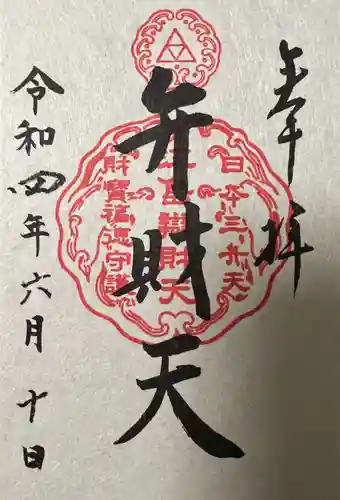 奉拝
日本三弁天
弁財天
財寶福徳守護
令和四年六月十日